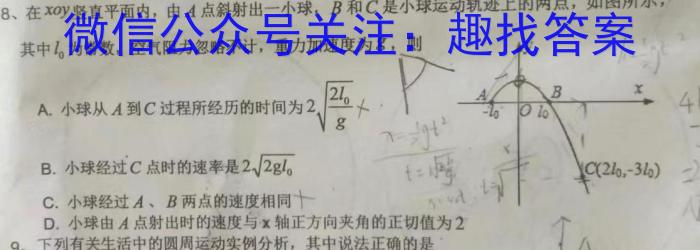 8、在xoy竖直平面内，由A点斜射出一小球，B和C是小球运动轨迹上的两点，如图所示，
其中l₀为常数，空气阻力忽略不计，重力加速度为g，则
微信公众号关注：趣找答案
A. 小球从A到C过程所经历的时间为2√(2l₀/g)
B. 小球经过C点时的速率是2√(2gl₀)
C. 小球经过A、B两点的速度相同
D. 小球由A点射出时的速度与x轴正方向夹角的正切值为2
A
-l₀
O
l₀
B
x
C(2l₀,-3l₀)
9、下列有关生活中的圆周运动实例分析，其中说法正确的是